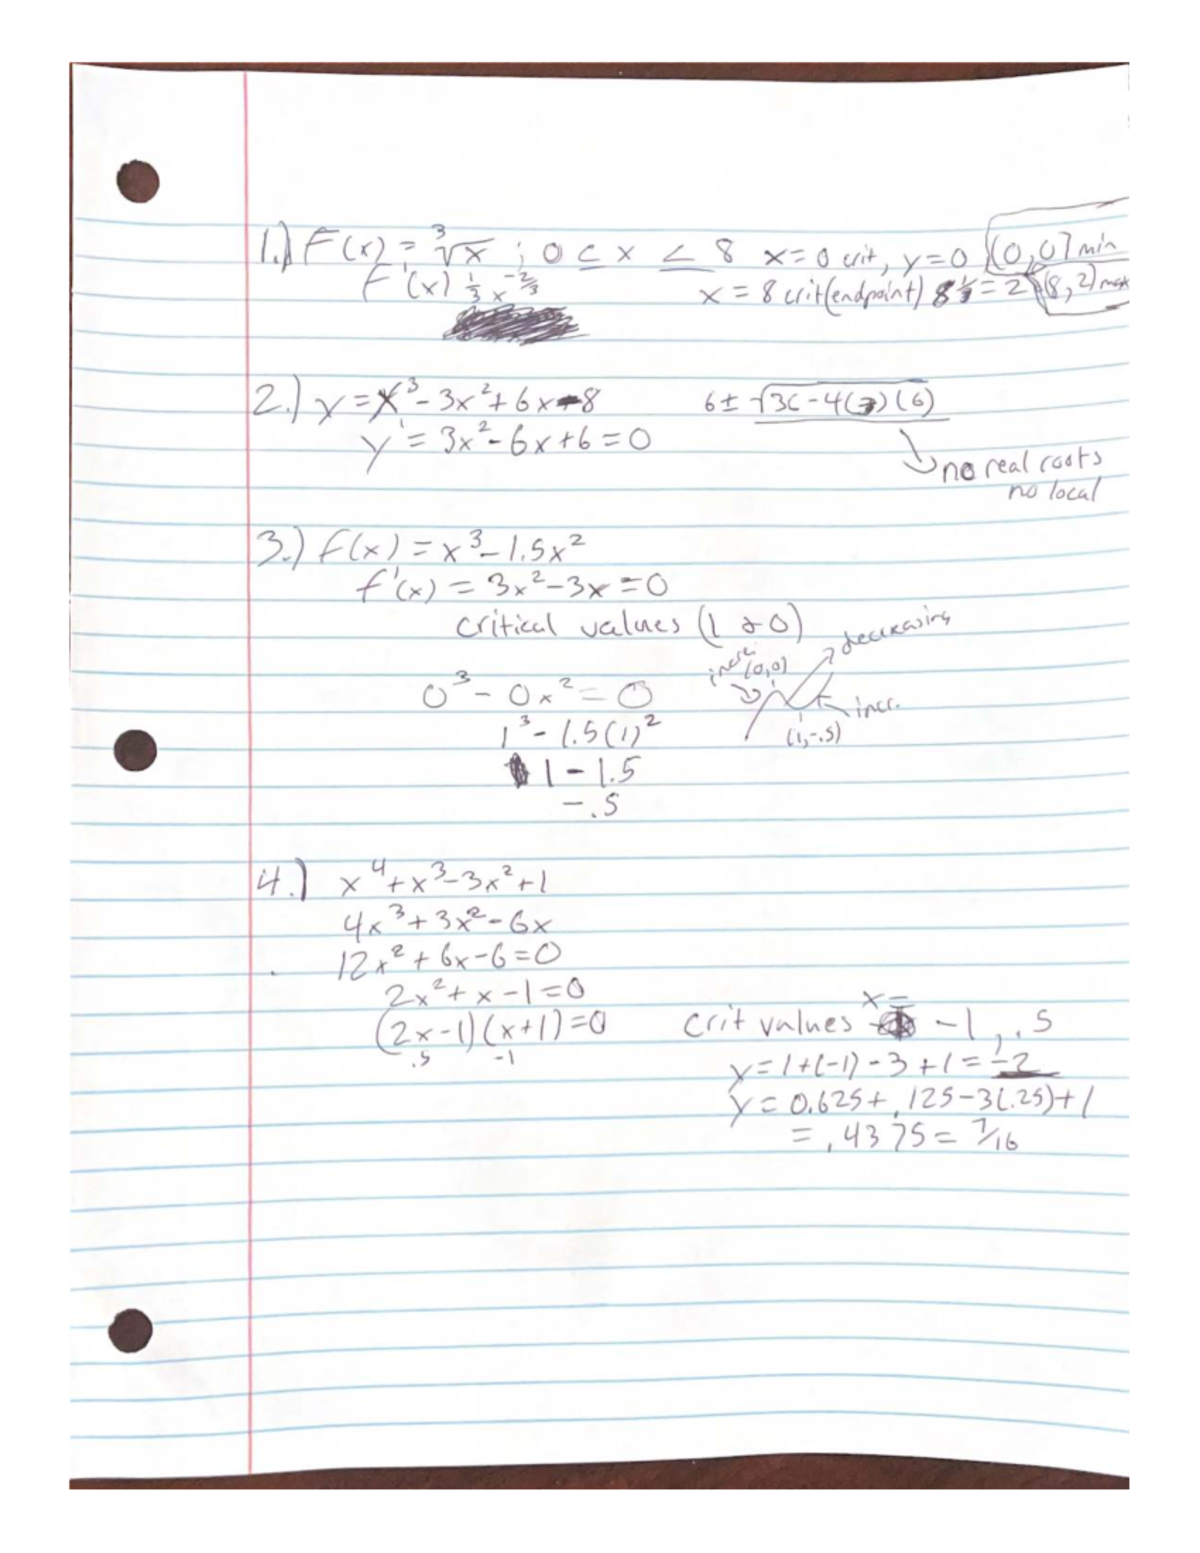 1.) F(x) = ∛x ; 0 ≤ x ≤ 8 x=0 crit, y=0 (0,0) min
F'(x) 1/3 x^-2/3 x = 8 crit(endpoint) 8^1/3 = 2 (8,2) max
2.) y = x³ - 3x² + 6x - 8 6± √36-4(3)(6)
y' = 3x² - 6x + 6 = 0
no real roots
no local
3.) f(x) = x³ - 1.5x²
f'(x) = 3x² - 3x = 0
critical values (1 & 0)
decreasing
(0,0)
0³ - 0x² = 0
incr.
1³ - 1.5(1)² (1,-.5)
1 - 1.5
-.5
4.) x⁴ + x³ - 3x² + 1
4x³ + 3x² - 6x
12x² + 6x - 6 = 0
2x² + x - 1 = 0
(2x-1)(x+1) = 0 Crit values x = -1, .5
.5 -1
y = 1 + (-1) - 3 + 1 = -2
y = 0.625 + .125 - 3(.25) + 1
= .4375 = 7/16